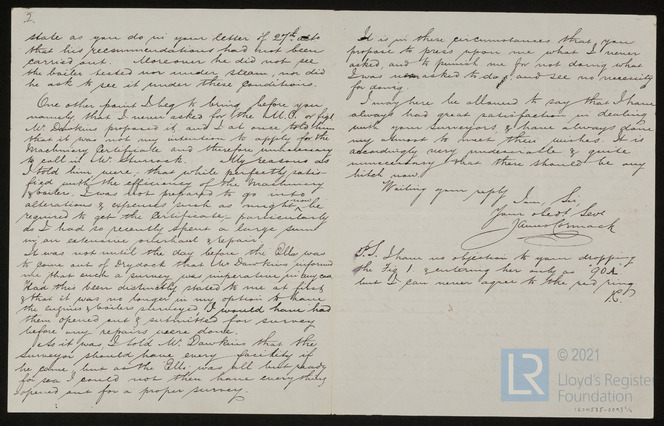 2.
state as you do in your letter of 27th ulto
that his recommendations had not been
carried out. Moreover he did not see
the boiler tested nor under steam, nor did
he ask to see it under these conditions.
One other point I beg to bring before you
namely that I never asked for the M.C. or fig 1
Mr Dawkins proposed it and I at once told him
that it was not my intention to apply for the
Machinery Certificate and therefore unnecessary
to call in Mr Sturrock. My reasons as
I told him were, that while perfectly satis-
fied with the efficiency of the Machinery
& boiler, I was not prepared to go into
alterations & expenses such as might now be
required to get the Certificate, particularly
as I had so recently spent a large sum
in an extensive overhaul & repair.
It was not until the day before the Ellis was
to come out of Dry dock that Mr Dawkins informed
me that such a survey was imperative in any case
Had this been distinctly stated to me at first
& that it was no longer in my option to have
the engines & boilers surveyed, I would have had
them opened out & submitted for survey
before any repairs were done.
As it was I told Mr. Dawkins that the
surveyor should have every facility if
he came, but as the Ellis was all but ready
for sea I could not then have everything
opened out for a proper survey.
It is in these circumstances that you
propose to press upon me what I never
asked, and to punish me for not doing what
I was asked to do, and see no necessity
for doing.
I may here be allowed to say that I have
always had great satisfaction in dealing
with your surveyors, & have always done
my utmost to meet their wishes. It is
accordingly very undesirable & quite
unnecessary that there should be any
hitch now.
Waiting your reply
I am, Sir,
Your obedt Servt
James Cormack
P.S. I have no objection to your dropping
the Fig 1. & entering her only as 90A
but I can never agree to the red ring
© 2021
LR
Lloyd's Register
Foundation